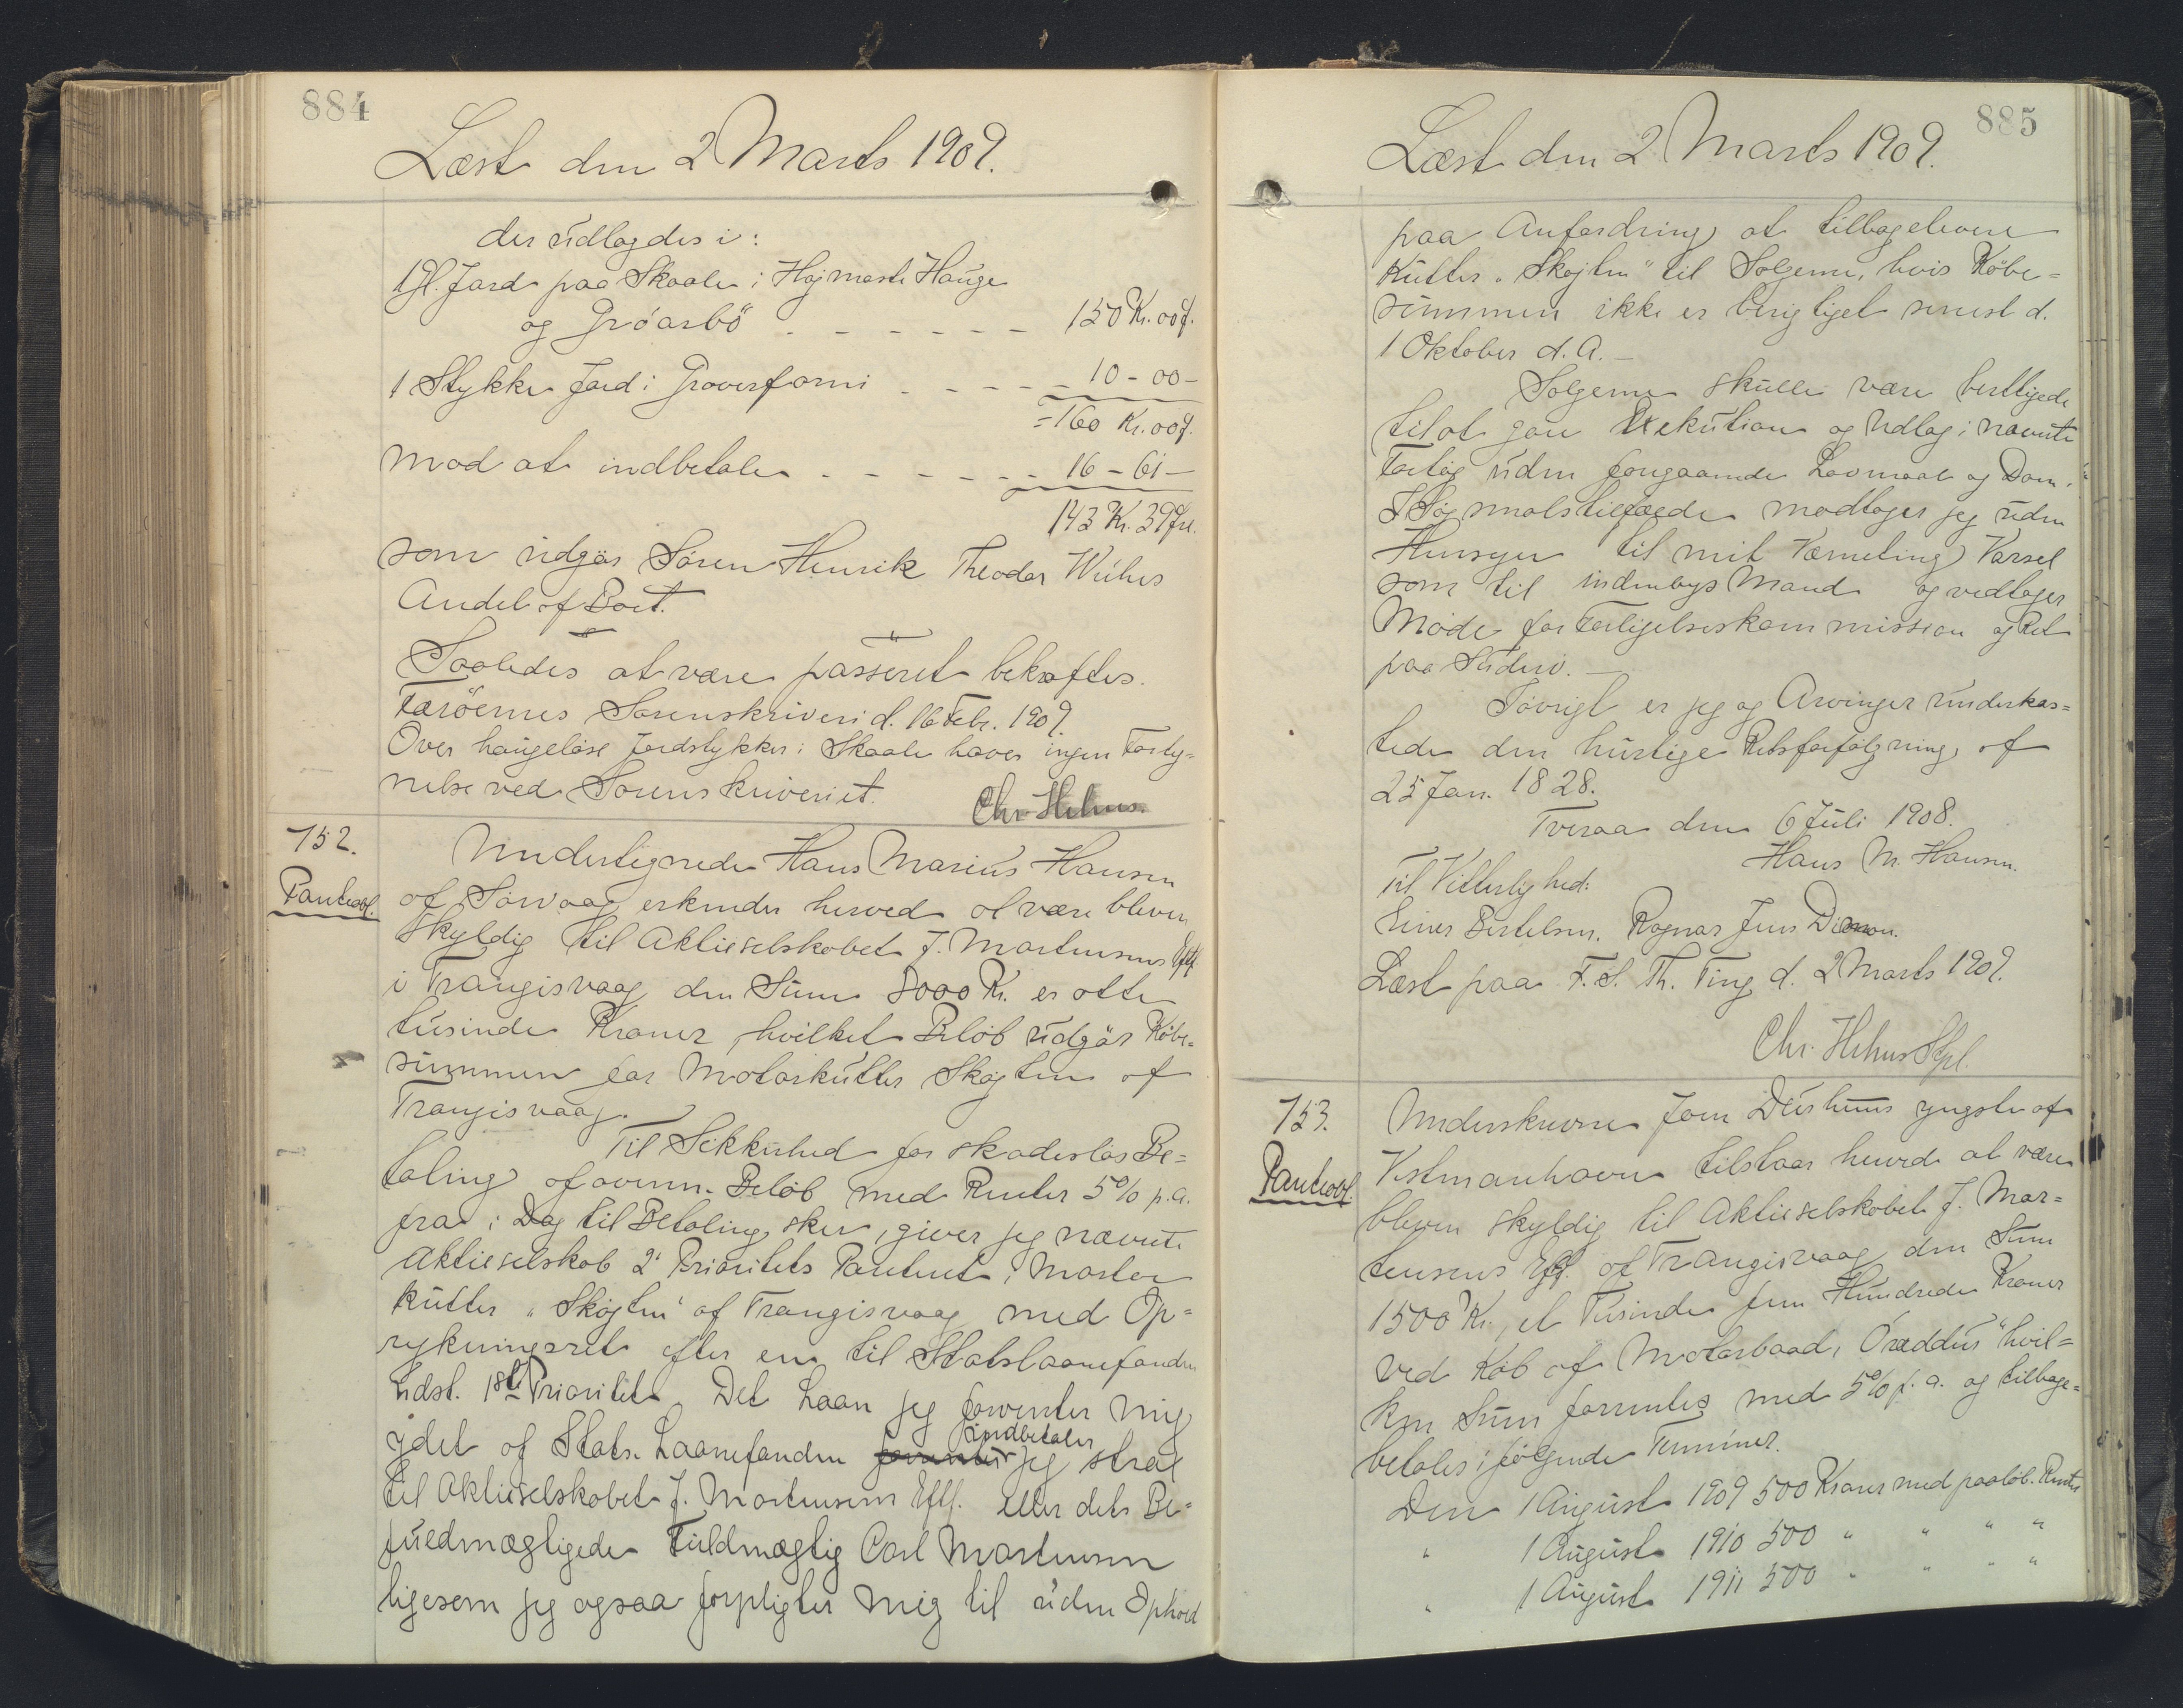 884
Læst den 2 Marts 1909.
der udlagdes i:
1 Gl. Jord paa Skaale i Højmarste Hauge
og Gröarbö - - - - - - 150 Kr. 00 f.
1 Stykke Jord i Groverfarmi - - - - 10 - 00 -
= 160 Kr. 00 f.
Mod at indbetale - - - - - 16 - 61 -
143 Kr. 39 Øre.
som udgör Sören Henrik Theodor
Andel af Boet.
Saaledes at være passeret bekræftes.
Færöernes Sorenskriveri d. 16 Febr. 1909.
Over haugelöse Jordstykker i Skaale haves ingen Forsy=
nelse ved Sorenskriveriet.
152.
Panteobl.
Undertegnede Hans Marius Hansen
af Sörvaag erkender herved at være bleven
skyldig til Aktieselskabet J. Mortensens Eftf.
i Trangisvaag den Sum 8000 Kr. er otte
tusinde Kroner, hvilket Belöb udgör Köbe=
summen for Motorkutter Sköjten af
Trangisvaag.
Til Sikkerhed for skadeslös Be=
taling af ovenn. Belöb med Renter 5 % p.a.
fra i Dag til Betaling sker, giver jeg nævnte
Aktieselskab 2' Prioritets Panteret i Motor
kutter "Sköjten" af Trangisvaag med Op=
rykningsret efter en til Statslaanefonden
udst. 1ste Prioritet. Det Laan jeg forventer mig
indbetaler
ydet af Stats. Laanefonden forventer jeg strax
til Aktieselskabet J. Mortensens Eftf. eller dets Be=
fuldmægtigede Fuldmægtig Carl Mortensen
ligesom jeg ogsaa forpligter mig til uden Ophold
885
Læst den 2 Marts 1909.
paa Anfordring at tilbagelevere
Kutter "Sköjten" til Sælgerne, hvis Köbe=
summen ikke er berigtiget senest d.
1 Oktober d. A. -
Sælgerne skulle være berettigede
til at göre Exekution og Udlæg i nævnte
Fartöj uden forgaaende Lovmaal og Dom.
I Sögsmalstilfælde modtager jeg uden
Hensyn til mit Værneting Varsel
som til indenbys Mand og vedtager
Möde for Forligelseskommission og Ret
paa Suderö. -
Iövrigt er jeg og Arvinger underkas=
tede den hurtige Retsforfölgning af
25 Jan. 1828.
Tveraa den 6 Juli 1908.
Hans M. Hansen.
Til Vitterlighed:
Einer Bertelsen. Ragnar Jens
Læst paa F. S. Th. Ting d. 2 Marts 1909.
153.
Panteobl.
Underskrevne Joen Durhuus yngste af
Vestmanhavn tilstaar herved at være
bleven skyldig til Aktieselskabet J. Mor=
tensens Eftf. af Trangisvaag den Sum
1500 Kr., et Tusinde fem Hundrede Kroner
ved Köb af Motorbaad "Óræddur" hvil=
ken Sum forrentes med 5 % p. a. og tilbage=
betales i fölgende Terminer.
Den 1 August 1909 500 Kroner med paalöb. Renter
" 1 August 1910 500 " " " "
" 1 August 1911 500 " " " "